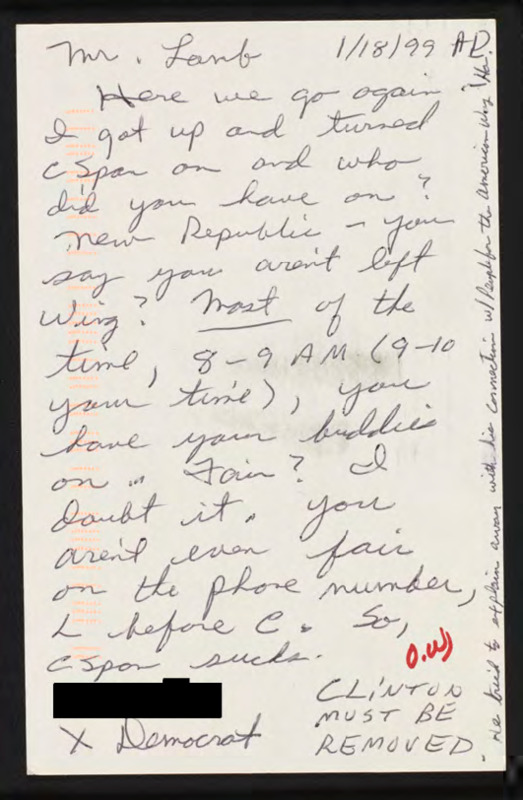 Mr. Lamb 1/18/99 AD
Here we go again
I got up and turned
CSpan on and who
did you have on?
New Republic - you
say you aren't left
wing? Most of the
time, 8-9 AM (9-10
your time), you
have your buddies
on. Fair? I
doubt it. You
aren't even fair
on the phone number,
L before C. So,
CSpan sucks.
O.W)
X Democrat
CLINTON
MUST BE
REMOVED
He tried to explain away with his connection w/ People for the American Way "Ha".